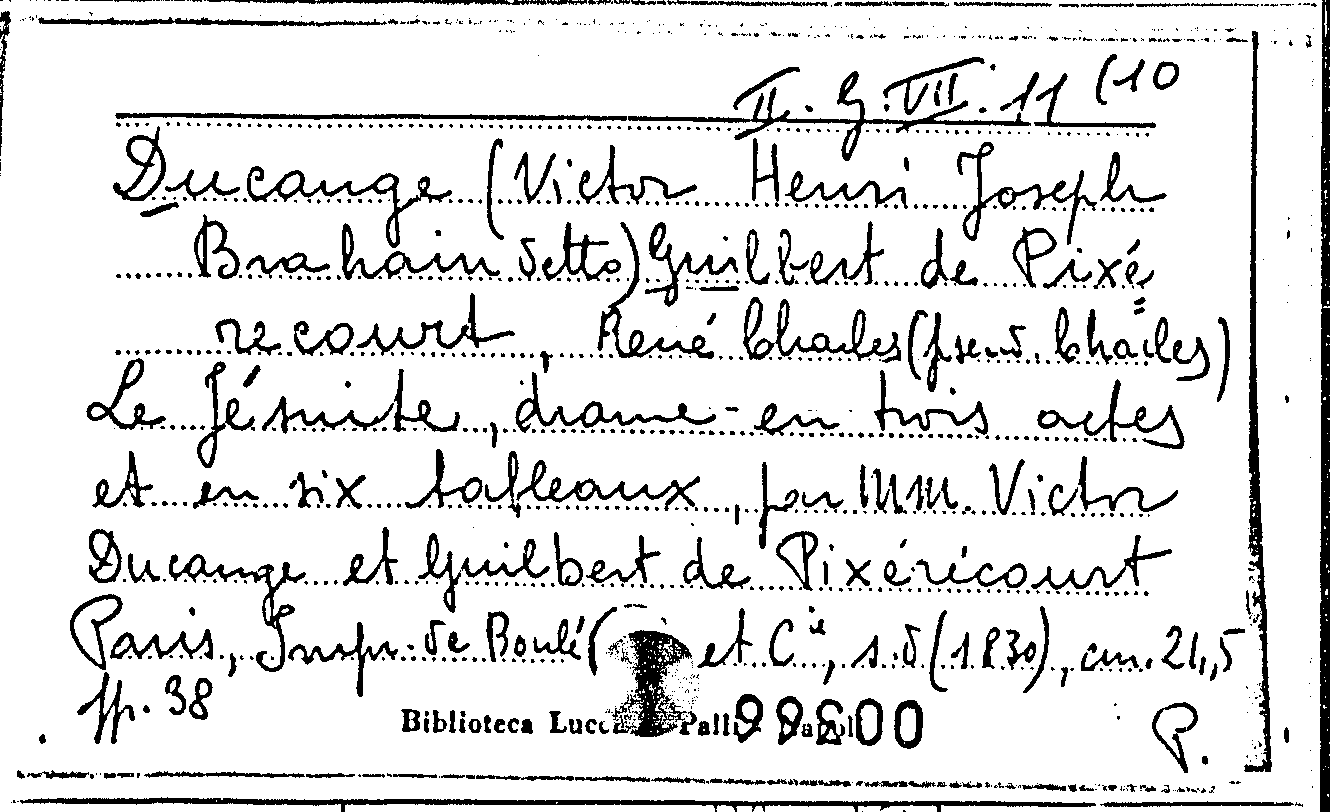 II. G. VII. 11 (10
Ducange (Victor Henri Joseph
Brahain detto) Guilbert de Pixé
recourt, René Charles (pseud. Charles)
Le Jésuite, drame en trois actes
et en six tableaux, par MM. Victor
Ducange et Guilbert de Pixérécourt
Paris, Impr. de Boulé ( et Cie, s.d (1830), cm. 21,5
pp. 38
Biblioteca Lucc Palli
P.